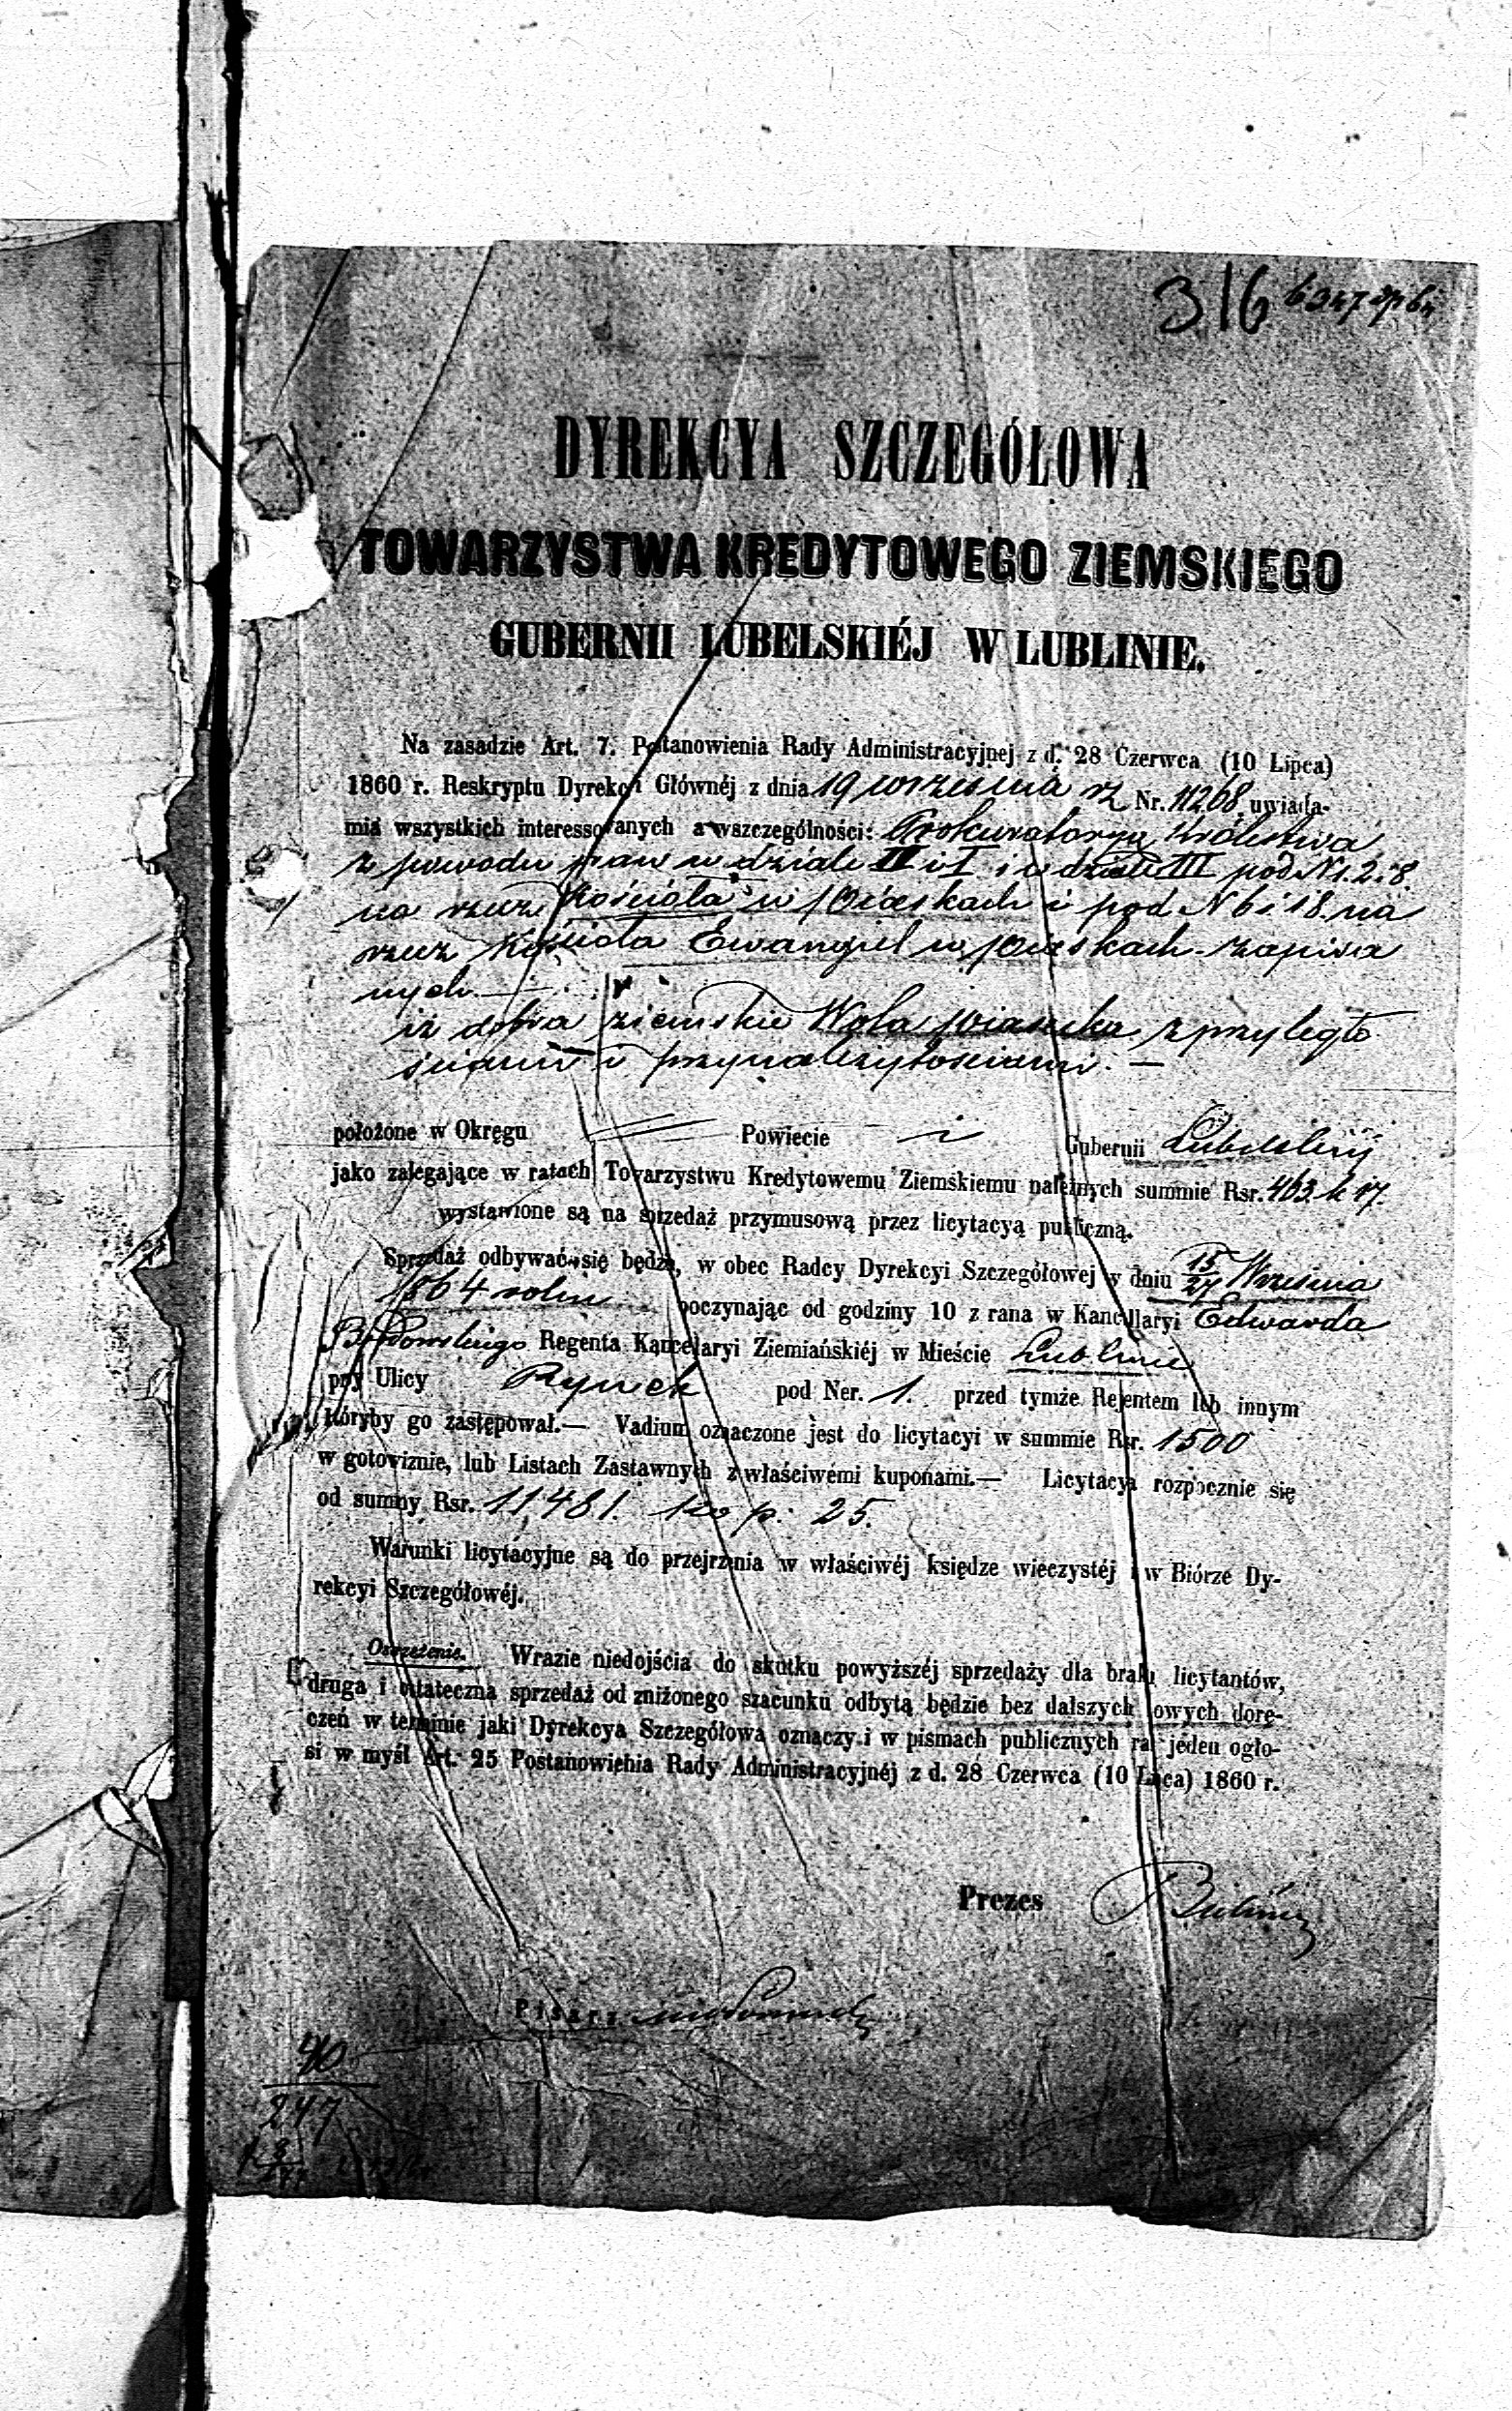 316
DYREKCYA SZCZEGÓŁOWA
TOWARZYSTWA KREDYTOWEGO ZIEMSKIEGO
GUBERNII LUBELSKIÉJ W LUBLINIE.
Na zasadzie Art. 7. Postanowienia Rady Administracyjnej z d. 28 Czerwca (10 Lipca)
1860 r. Reskryptu Dyrekcyi Głównéj z dnia 19 września rz Nr. 11208 uwiada-
mia wszystkich interessowanych a wszczególności: Prokuratoryą Królestwa
z powodu praw w dziale II i I i w dziale III pod N 1. 2. 8.
na rzecz Kościoła w Piaskach i pod N 6 i 18. na
rzecz Kościoła Ewangiel w Piaskach zapisa
nych
iż dobra ziemskie Wola Piasecka z przyległo
ściami i przynależytościami. —
położone w Okręgu Powiecie i Gubernii Lubelskiéj
jako zalegające w ratach Towarzystwu Kredytowemu Ziemskiemu należnych summie Rsr. 463 k 17.
wystawione są na sprzedaż przymusową przez licytacyą publiczną.
Sprzedaż odbywać się będzie, w obec Radcy Dyrekcyi Szczegółowej w dniu 15/27 Września
1864 roku poczynając od godziny 10 z rana w Kancellaryi Edwarda
Regenta Kancelaryi Ziemiańskiéj w Mieście Lublinie
przy Ulicy Rynek pod Ner. 1. przed tymże Rejentem lub innym
któryby go zastępował.— Vadium oznaczone jest do licytacyi w summie Rsr. 1500
w gotowiznie, lub Listach Zastawnych z właściwemi kuponami.— Licytacya rozpocznie się
od summy Rsr. 11,481. kop. 25.
Warunki licytacyjne są do przejrzenia w właściwéj księdze wieczystéj i w Biórze Dy-
rekcyi Szczegółowéj.
Ostrzeżenie. Wrazie niedojścia do skutku powyższéj sprzedaży dla braku licytantów,
druga i ostateczna sprzedaż od zniżonego szacunku odbytą będzie bez dalszych nowych dorę-
czeń w terminie jaki Dyrekcya Szczegółowa oznaczy i w pismach publicznych raz jeden ogło-
si w myśl Art. 25 Postanowienia Rady Administracyjnéj z d. 28 Czerwca (10 Lipca) 1860 r.
Prezes
Pisarz
40
247